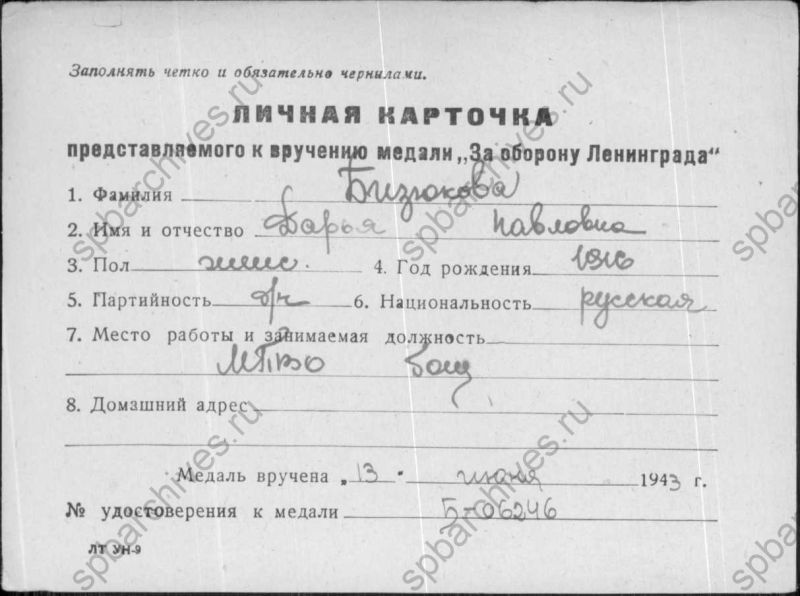 Заполнять четко и обязательно чернилами.
ЛИЧНАЯ КАРТОЧКА
представляемого к вручению медали „За оборону Ленинграда“
1. Фамилия Бизюкова
2. Имя и отчество Дарья Павловна
3. Пол женс. 4. Год рождения 1916
5. Партийность б/п 6. Национальность русская
7. Место работы и занимаемая должность
МПВО боец
8. Домашний адрес
Медаль вручена „13" июня 1943 г.
№ удостоверения к медали Б-06246
ЛТ УН-9
spbarchives.ru
spbarchives.ru
spbarchives.ru
spbarchives.ru